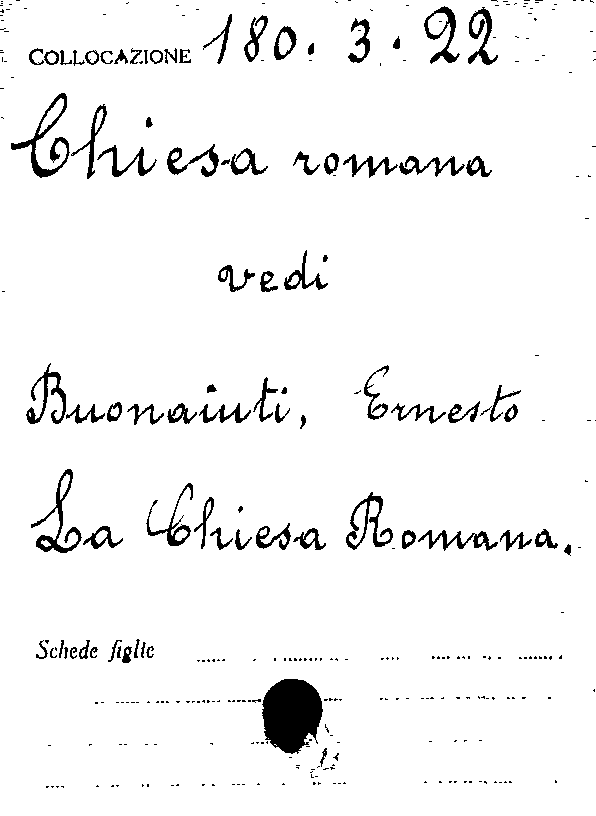 COLLOCAZIONE 180. 3. 22
Chiesa romana
vedi
Buonaiuti, Ernesto
La Chiesa Romana.
Schede figlie